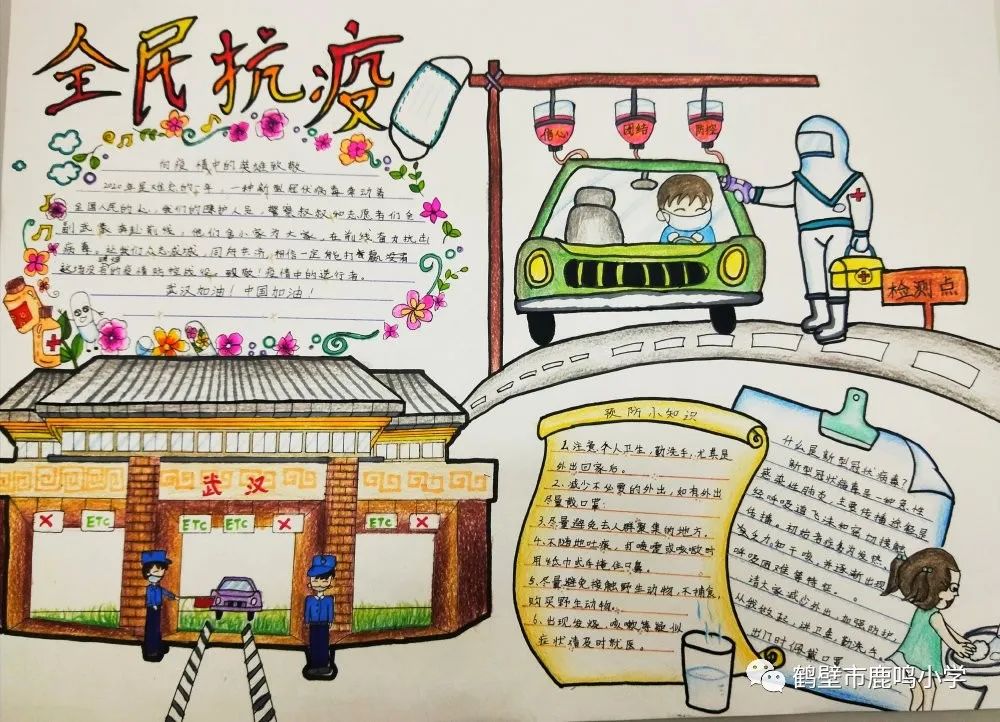 全民抗疫
向疫情中的英雄致敬
2020年是难忘的一年，一种新型冠状病毒牵动着
全国人民的心，我们的医护人员，警察叔叔和志愿者们全
副武装奔赴前线，他们舍小家为大家，在前线奋力抗击
病毒，让我们众志成城，同舟共济，相信一定能打赢这
没有硝烟的疫情防控战役。致敬！疫情中的逆行者。
武汉加油！中国加油！
信心
团结
防控
检测点
武汉
ETC
ETC
ETC
ETC
预防小知识
1.注意个人卫生，勤洗手，尤其是
外出回家后。
2.减少不必要的外出，如有外出
尽量戴口罩。
3.尽量避免去人群聚集的地方。
4.不随地吐痰，打喷嚏或咳嗽时
用纸巾或手掩住口鼻。
5.尽量避免接触野生动物，不捕食，
购买野生动物。
6.出现发烧，咳嗽等疑似
症状请及时就医。
什么是新型冠状病毒？
新型冠状病毒是一种急性
感染性肺炎，主要传播途径是
经呼吸道飞沫和密切接触
传播。初始症状为发热、
乏力和干咳，并逐渐出现
呼吸困难等特征。
请大家减少外出，加强防护，
从我做起，讲卫生，勤洗手，
出门时佩戴口罩
鹤壁市鹿鸣小学